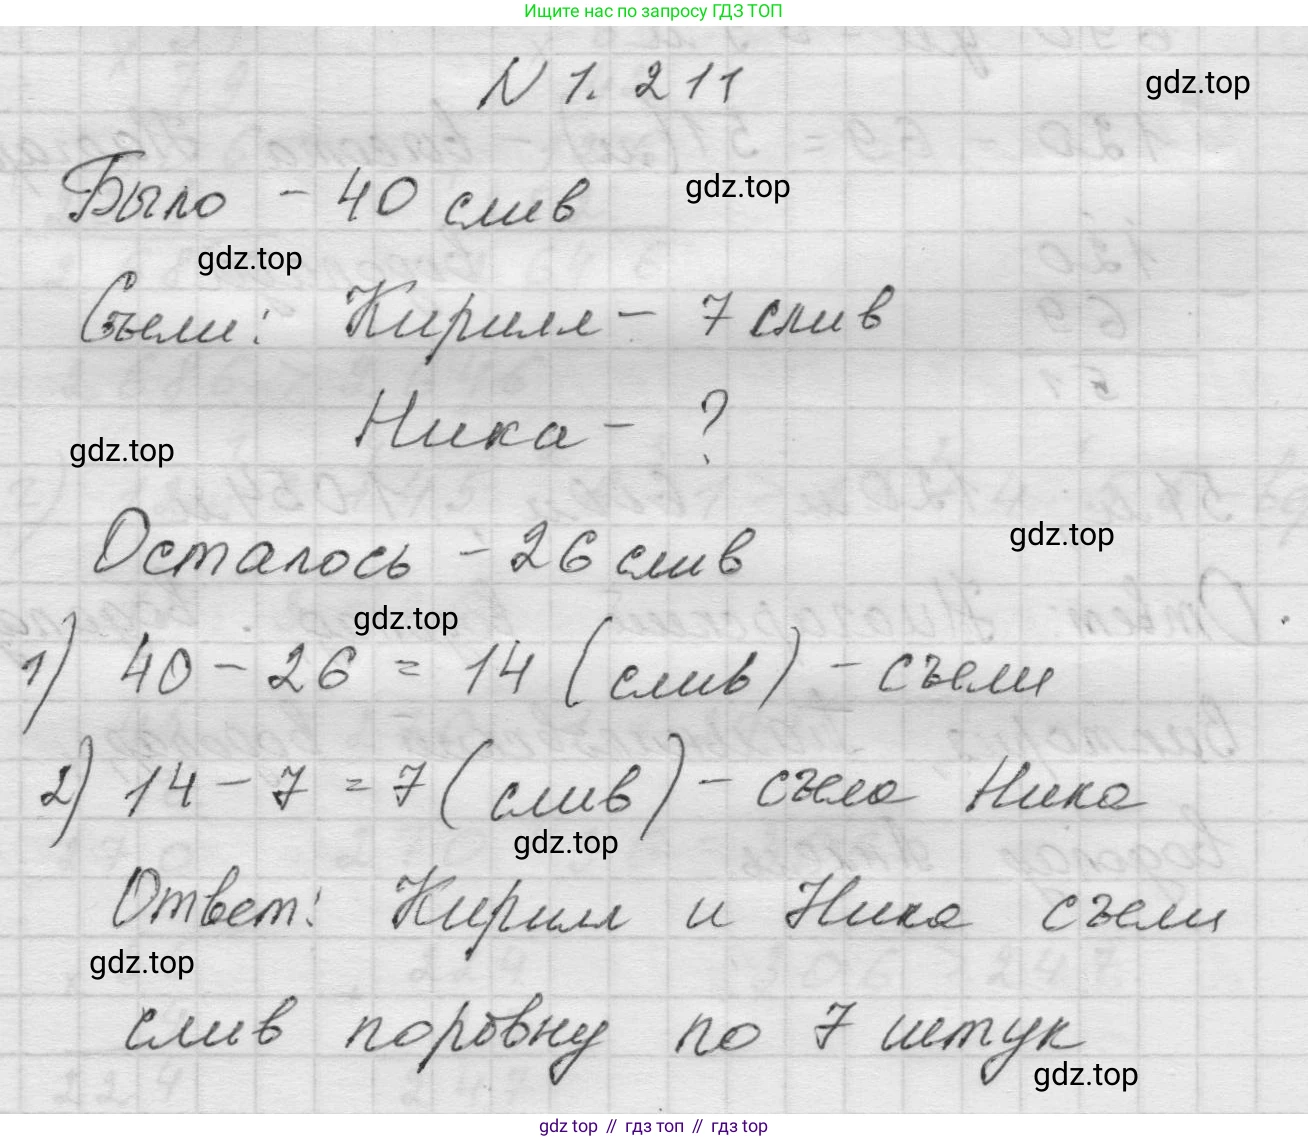 Ищите нас по запросу ГДЗ ТОП
N 1. 211
gdz.top
Было - 40 слив
gdz.top
gdz.top
Съели: Кирилл - 7 слив
Ника - ?
gdz.top
Осталось - 26 слив
gdz.top
gdz.top
1) 40 - 26 = 14 (слив) - съели
2) 14 - 7 = 7 (слив) - съела Ника
gdz.top
Ответ: Кирилл и Ника съели
gdz.top
слив поровну по 7 штук
gdz.top
gdz top // гдз топ // гдз top